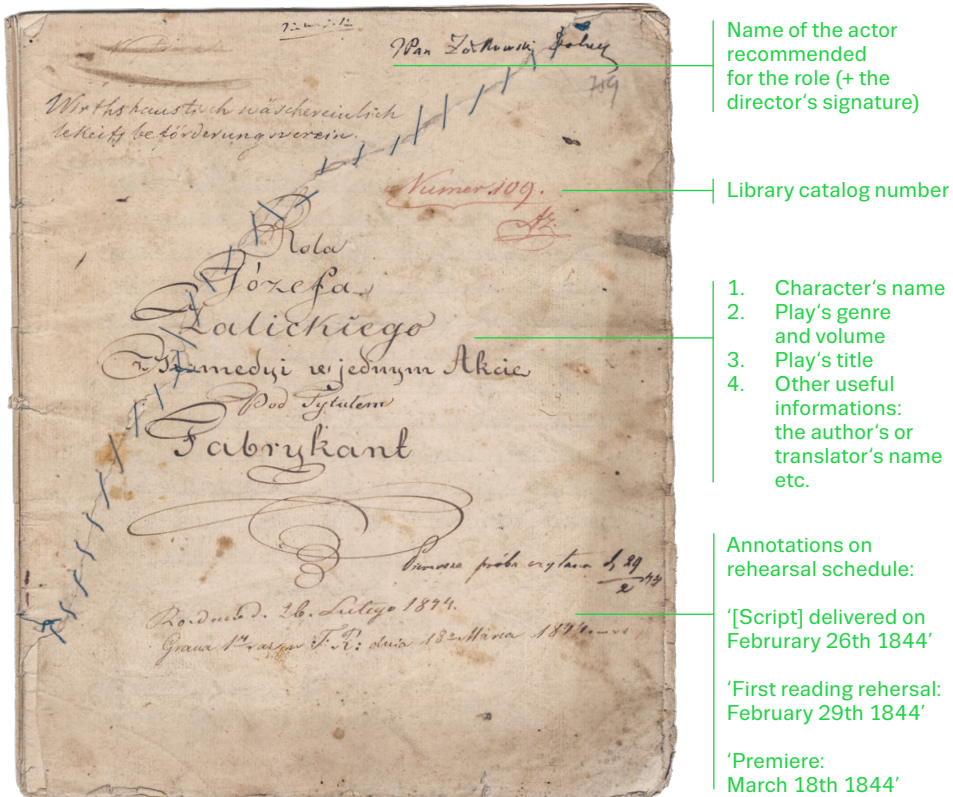 Pan Żółkowski
719
Wirthshaustisch wäschereinlich
keits beförderungsverein.
Numer 109.
Rola
Józefa
Zalickiego
w Komedyi w jednym Akcie
Pod Tytułem
Fabrykant
Pierwsza próba czytana d. 29/2 44
Rozdano d. 26. Lutego 1844.
Grana 1szy raz w T. R: dnia 18go Marca 1844
Name of the actor
recommended
for the role (+ the
director‘s signature)
Library catalog number
1. Character‘s name
2. Play‘s genre
and volume
3. Play‘s title
4. Other useful
informations:
the author‘s or
translator‘s name
etc.
Annotations on
rehearsal schedule:
‘[Script] delivered on
Februrary 26th 1844’
‘First reading rehersal:
February 29th 1844’
‘Premiere:
March 18th 1844’